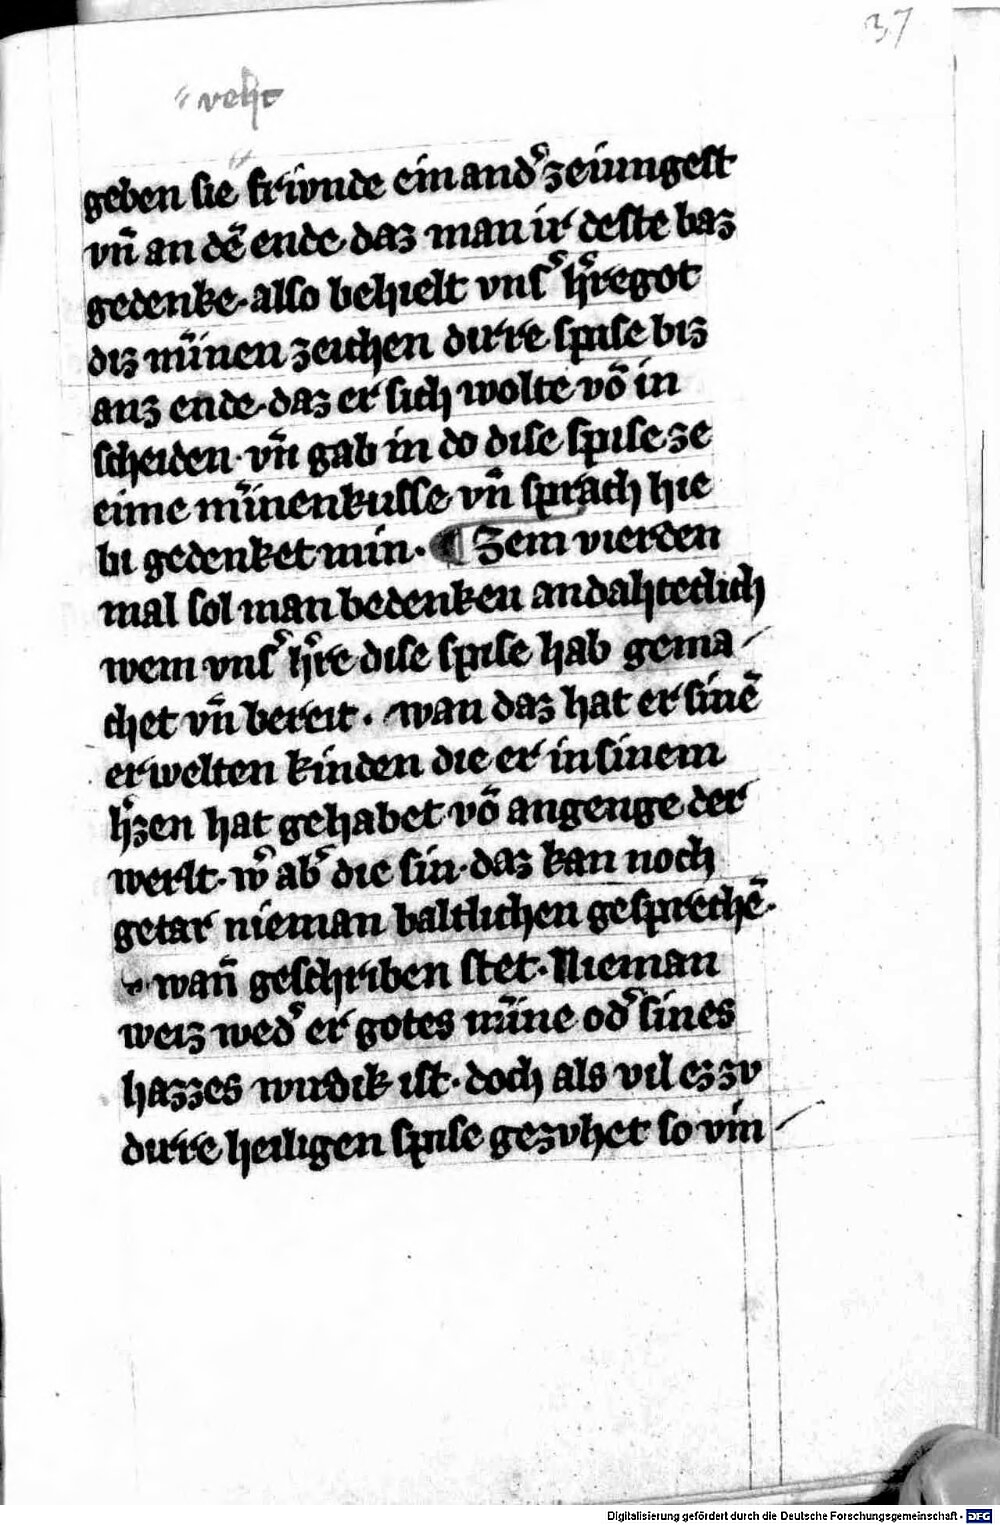 37
veht
geben sie frivnde ein andˀ zeiungest
vn̄ an dē ende daz man ir deste baz
gedenke. also behielt vnsˀ hˀregot
diz mīnen zeichen dirre spise biz
anz ende. daz er sich wolte vō in
scheiden. vn̄ gab in do dise spise ze
eime mīnenkusse vn̄ sprach hie
bi gedenket min. ¶ Zem vierden
mal sol man bedenken andahteclich
wem vnsˀ hˀre dise spise hab gema
chet vn̄ bereit. wan daz hat er sinē
erwelten kinden die er in sinem
hˀzen hat gehabet vō angenge der
werlt. wˀ abˀ die sin. daz kan noch
getar nieman baltlichen gesprechē.
wan̄ geschriben stet. Nieman
weiz wedˀ er gotes mīne odˀ sines
hazzes wirdik ist. doch als vil ez zv
dirre heiligen spise gezvhet so vin
Digitalisierung gefördert durch die Deutsche Forschungsgemeinschaft - DFG